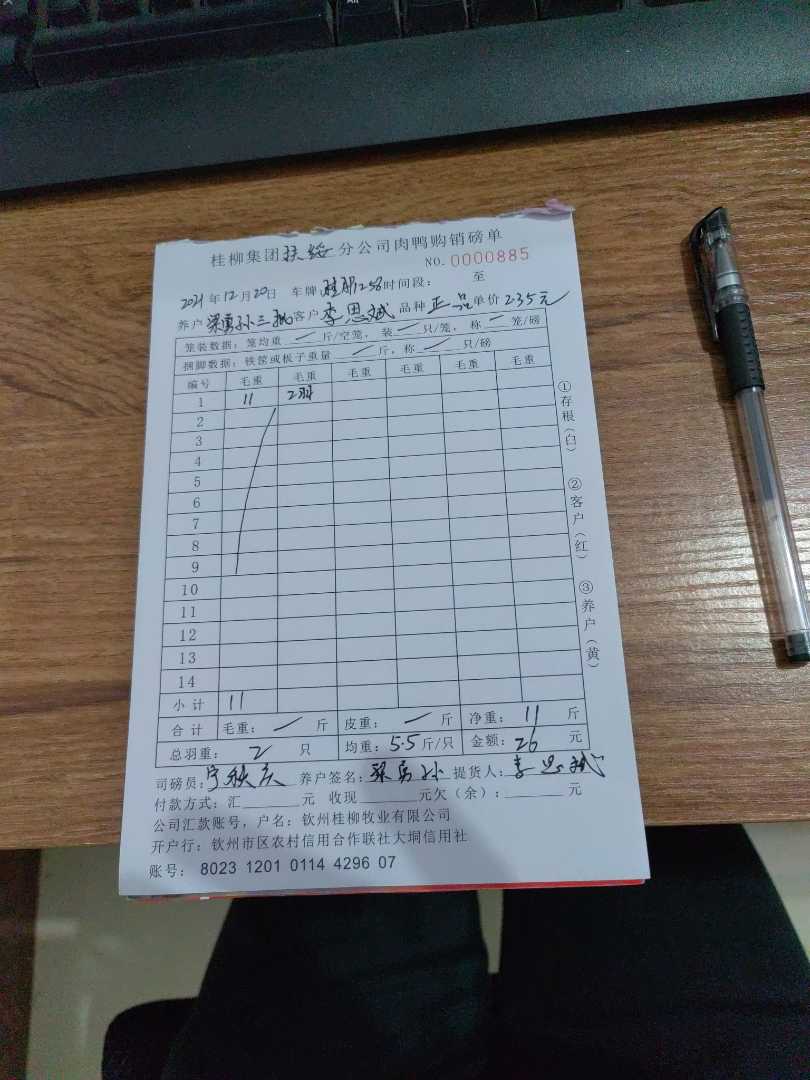 桂柳集团扶绥分公司肉鸭购销磅单
NO.0000885
2021年12月20日 车牌 时间段: 至
养户 三批客户李思斌品种正品单价2.35元
笼装数据:笼均重 一 斤/空笼,装 一 只/笼,称 一 笼/磅
捆脚数据:铁筐或板子重量 一 斤,称 一 只/磅
编号 毛重 毛重 毛重 毛重 毛重 毛重
1 11 2羽
2
3
4
5
6
7
8
9
10
11
12
13
14
小计 11
合计 毛重: 一 斤 皮重: 一 斤 净重: 11 斤
总羽重: 2 只 均重:5.5斤/只 金额:26 元
司磅员: 养户签名: 提货人:李思斌
付款方式:汇 元 收现 元欠(余): 元
公司汇款账号,户名:钦州桂柳牧业有限公司
开户行:钦州市区农村信用合作联社大垌信用社
账号: 8023 1201 0114 4296 07
①存根(白)
②客户(红)
③养户(黄)